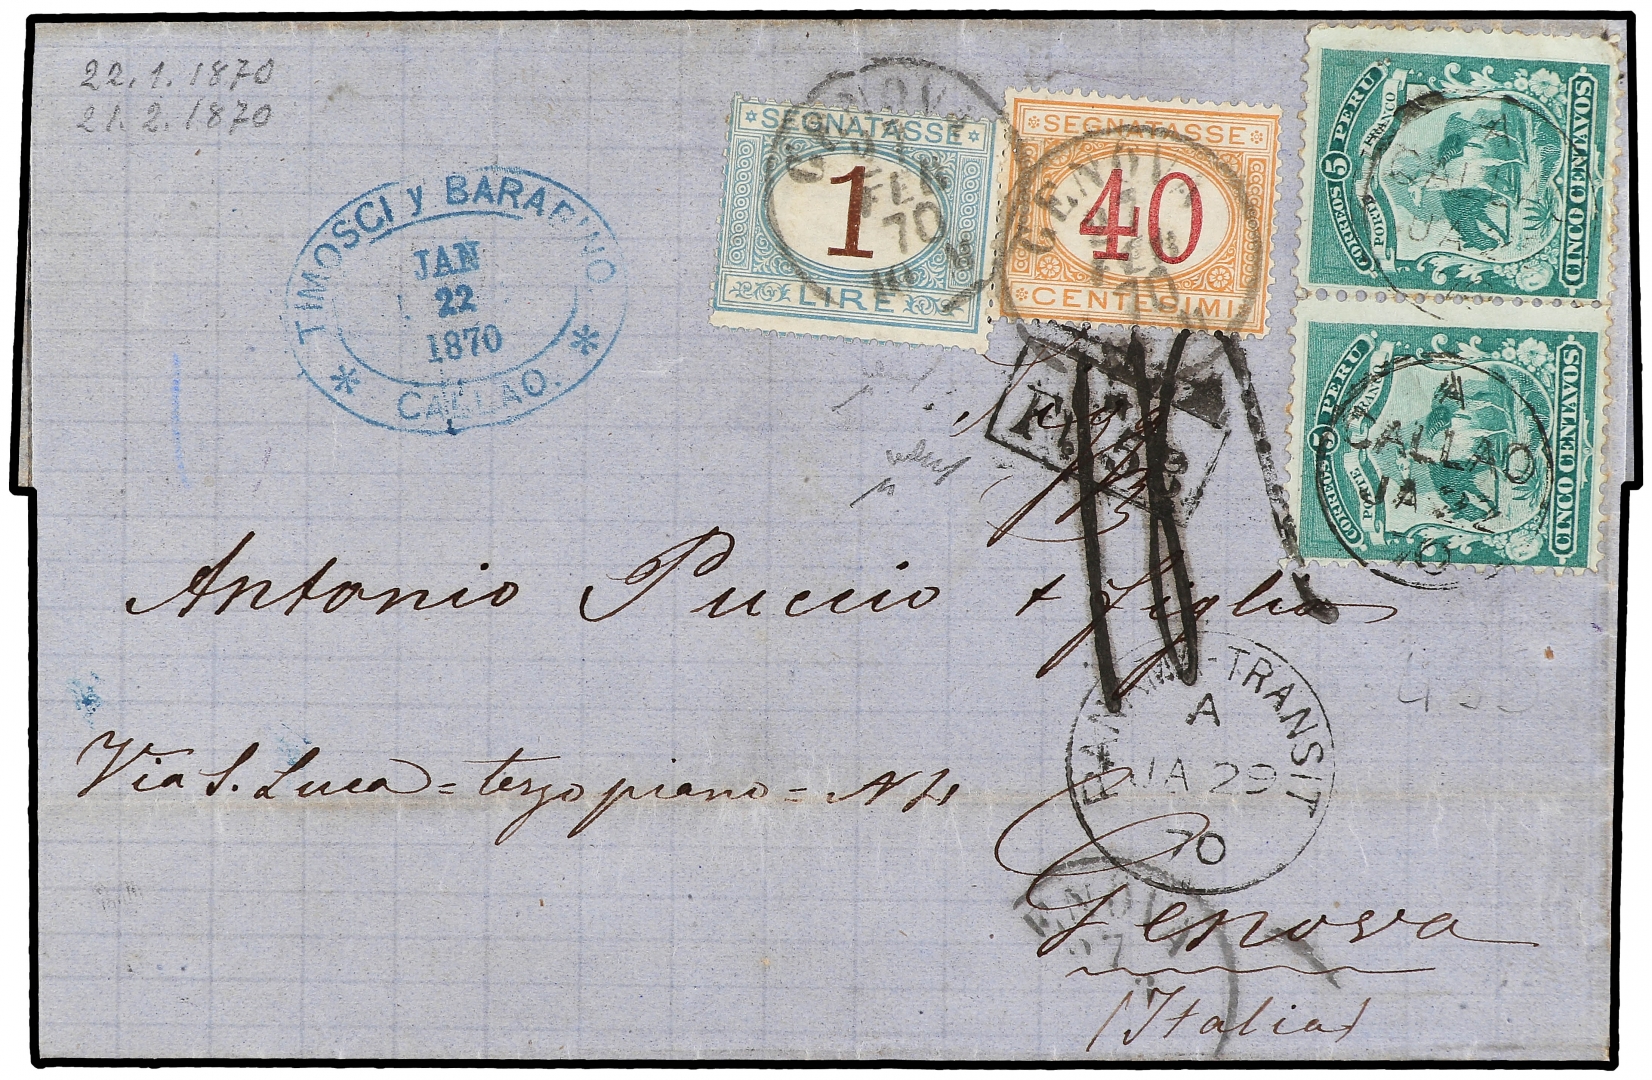 22.1.1870
21.2.1870
TIMOSCI y BARABINO.
JAN
22
1870
* CALLAO. *
SEGNATASSE
1
LIRE
GENOVA
FEB
70
SEGNATASSE
40
CENTESIMI
GENOVA
70
CORREOS 5 PERU
PORTE FRANCO
CINCO CENTAVOS
CORREOS 5 PERU
PORTE FRANCO
CINCO CENTAVOS
CALLAO
JA 22
70
Antonio Puccio + figlio
Via S. Luca = terzo piano = N 4
PANAMA-TRANSIT
A
JA 29
70
Genova
(Italia)